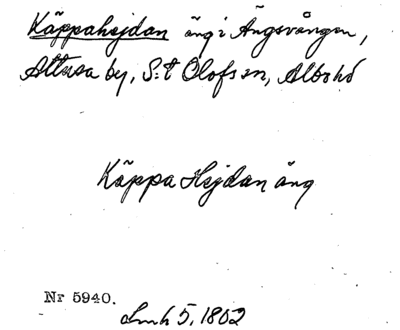 Käppahejdan äng i Ängsvången,
Attusa by, S:t Olofs sn, Albo hd
Käppa Hejdan äng
Nr 5940.
Lmh 5, 1802